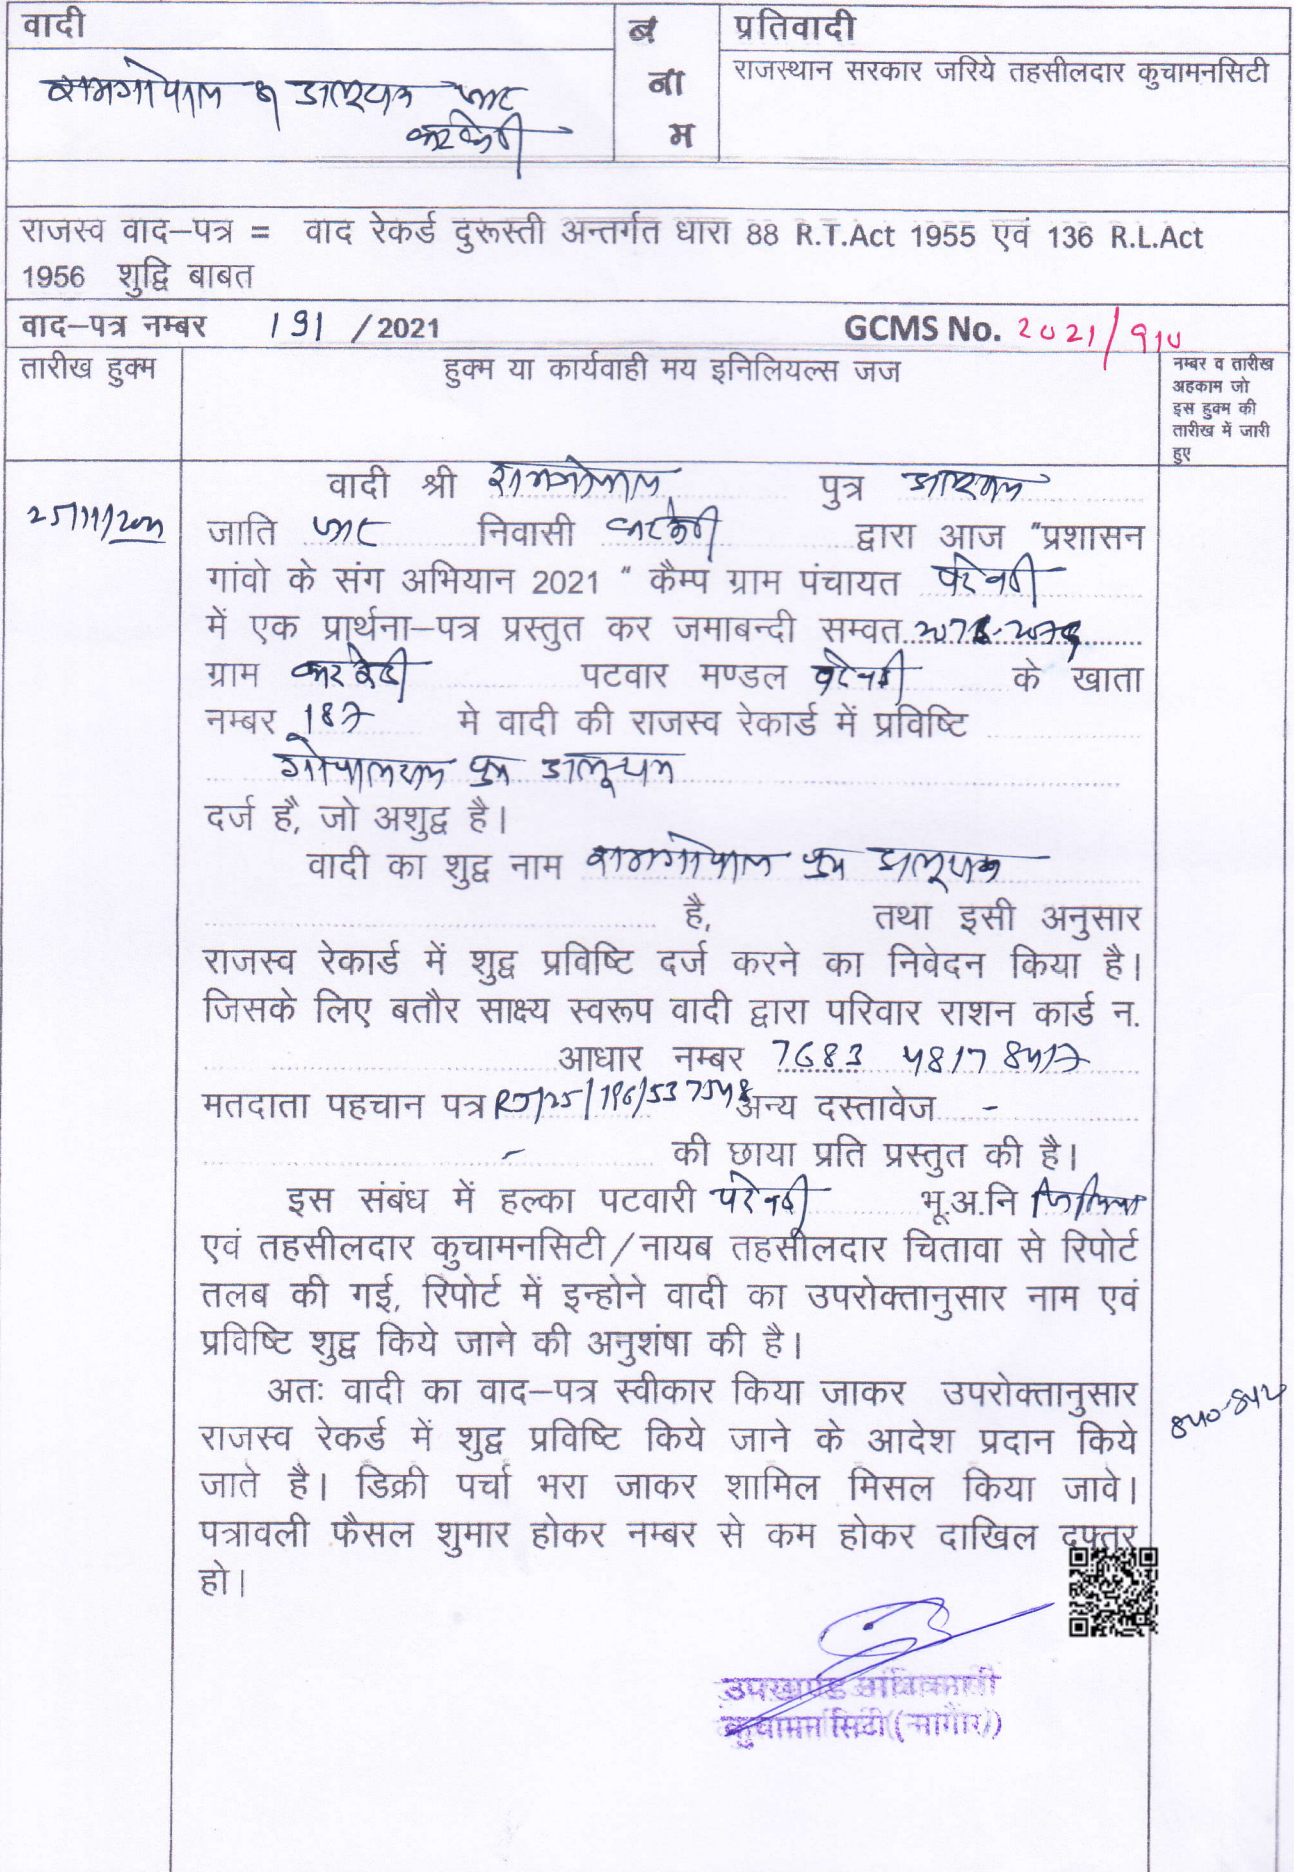 वादी
ब
ना
म
प्रतिवादी
राजस्थान सरकार जरिये तहसीलदार कुचामनसिटी
रामगोपाल
जाट
राजस्व वाद–पत्र = वाद रेकर्ड दुरूस्ती अन्तर्गत धारा 88 R.T.Act 1955 एवं 136 R.L.Act
1956 शुद्धि बाबत
वाद–पत्र नम्बर 191 /2021 GCMS No. 2021/910
तारीख हुक्म
हुक्म या कार्यवाही मय इनिलियल्स जज
नम्बर व तारीख
अहकाम जो
इस हुक्म की
तारीख में जारी
हुए
25/11/2021
वादी श्री रामगोपाल पुत्र
जाति जाट निवासी द्वारा आज "प्रशासन
गांवो के संग अभियान 2021 " कैम्प ग्राम पंचायत
में एक प्रार्थना–पत्र प्रस्तुत कर जमाबन्दी सम्वत
ग्राम पटवार मण्डल के खाता
नम्बर 187 मे वादी की राजस्व रेकार्ड में प्रविष्टि
पुत्र
दर्ज है, जो अशुद्ध है।
वादी का शुद्ध नाम रामगोपाल पुत्र
है, तथा इसी अनुसार
राजस्व रेकार्ड में शुद्ध प्रविष्टि दर्ज करने का निवेदन किया है।
जिसके लिए बतौर साक्ष्य स्वरूप वादी द्वारा परिवार राशन कार्ड न.
आधार नम्बर 7683 4817 8417
मतदाता पहचान पत्र RJ/25/196/537548 अन्य दस्तावेज –
– की छाया प्रति प्रस्तुत की है।
इस संबंध में हल्का पटवारी भू.अ.नि
एवं तहसीलदार कुचामनसिटी/नायब तहसीलदार चितावा से रिपोर्ट
तलब की गई, रिपोर्ट में इन्होने वादी का उपरोक्तानुसार नाम एवं
प्रविष्टि शुद्ध किये जाने की अनुशंषा की है।
अतः वादी का वाद–पत्र स्वीकार किया जाकर उपरोक्तानुसार
राजस्व रेकर्ड में शुद्ध प्रविष्टि किये जाने के आदेश प्रदान किये
जाते है। डिक्री पर्चा भरा जाकर शामिल मिसल किया जावे।
पत्रावली फैसल शुमार होकर नम्बर से कम होकर दाखिल दफ्तर
हो।
840-842
उपखण्ड अधिकारी
कुचामन सिटी (नागौर)